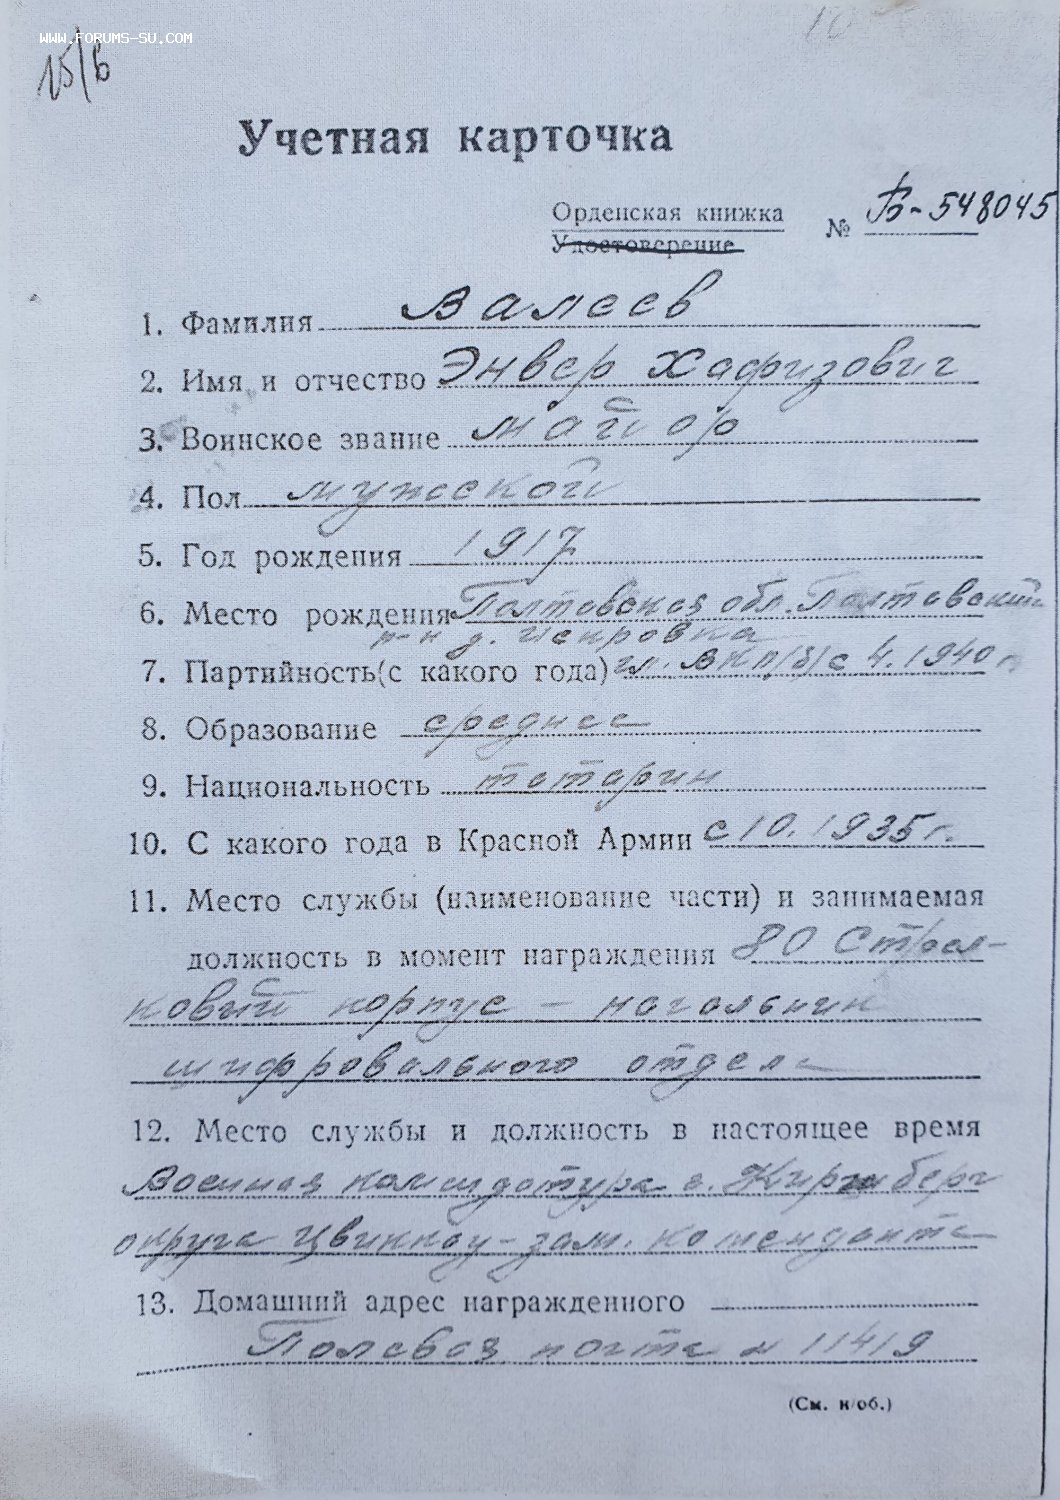 WWW.FORUMS-SU.COM
15/в
10
Учетная карточка
Орденская книжка
Удостоверение
№ Б-548045
1. Фамилия Валеев
2. Имя и отчество Энвер Хафизович
3. Воинское звание майор
4. Пол мужской
5. Год рождения 1917
6. Место рождения Полтавская обл. Полтавский
р-н д. Искровка
7. Партийность(с какого года) чл. ВКП(б) с 4.1940 г.
8. Образование среднее
9. Национальность татарин
10. С какого года в Красной Армии с 10.1935 г.
11. Место службы (наименование части) и занимаемая
должность в момент награждения 80 Стрел-
ковый корпус - начальник
шифровального отдела
12. Место службы и должность в настоящее время
Военная комендатура г. Кирхберг
округа Цвиккау - зам. коменданта
13. Домашний адрес награжденного
Полевая почта № 11419
(См. н/об.)